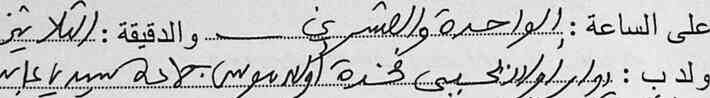 على الساعة : الواحدة والعشرين والدقيقة : الثلاثين
ولد ب : دوار اولاد فخدة أولاد موسى جماعة سيدي